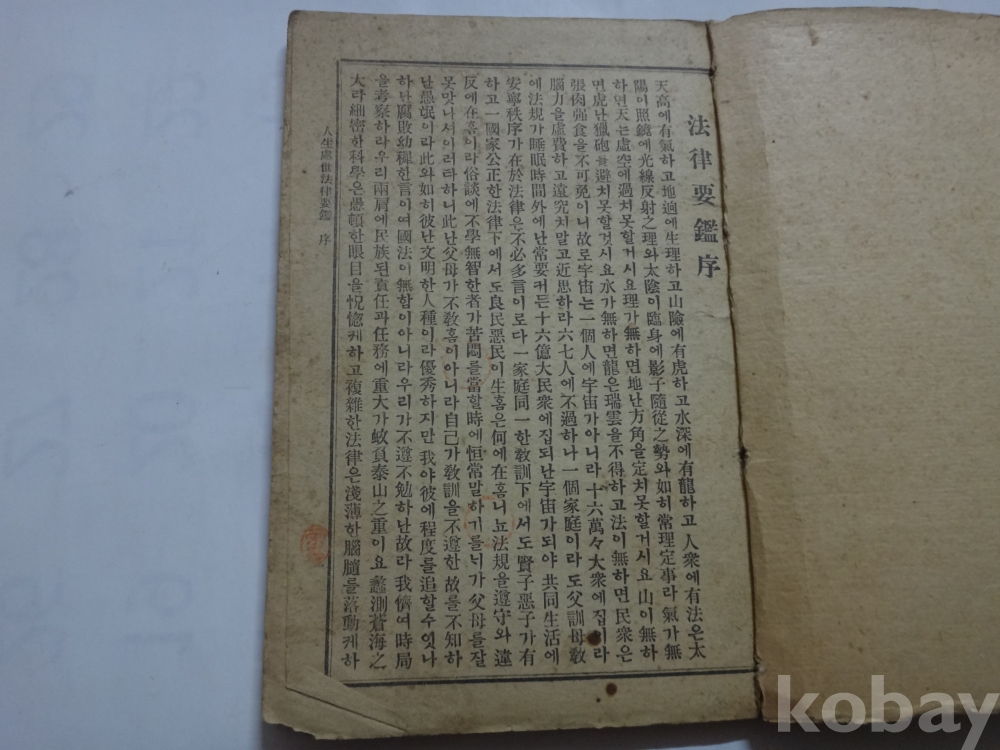 法律要鑑序
天高에有氣하고地逈에生理하고山險에有虎하고水深에有龍하고人衆에有法은太
陽이照鏡에光線反射之理와太陰이臨身에影子隨從之勢와如히常理定事라氣가無
하면天는虛空에過치못할거시요理가無하면地난方角을定치못할거시요山이無하
면虎난獵砲를避치못할것시요水가無하면龍은瑞雲을不得하고法이無하면民衆은
張肉强食을不可免이니故로宇宙는一個人에宇宙가아니라十六萬々大衆에집이라
腦力을虛費하고遠究치말고近思하라六七人에不過하나一個家庭이라도父訓母敎
에法規가睡眠時間外에난常要커든十六億大民衆에집되난宇宙가되야共同生活에
安寧秩序가在於法律은不必多言이로다一家庭同一한敎訓下에서도賢子惡子가有
하고一國家公正한法律下에서도良民惡民이生홈은何에在홈니뇨法規을遵守와違
反에在홈이라俗談에不學無智한者가苦悶를當할時에恒常말하기를늬가父母를잘
못맛나셔이러타하니此난父母가不敎홈이아니라自己가敎訓을不遵한故를不知하
난愚氓이라此와如히彼난文明한人種이라優秀하지만我야彼에程度를追할수잇나
하난腐敗幼穉한言이여國法이無함이아니라우리가不遵不勉하난故라我儕여時局
을考察하라우리兩肩에民族된責任과任務에重大가蚊負泰山之重이요蠡測蒼海之
大라細密한科學은愚頓한眼目을怳惚케하고複雜한法律은淺薄한腦髓를落動케하
人生處世法律要鑑 序
kobay